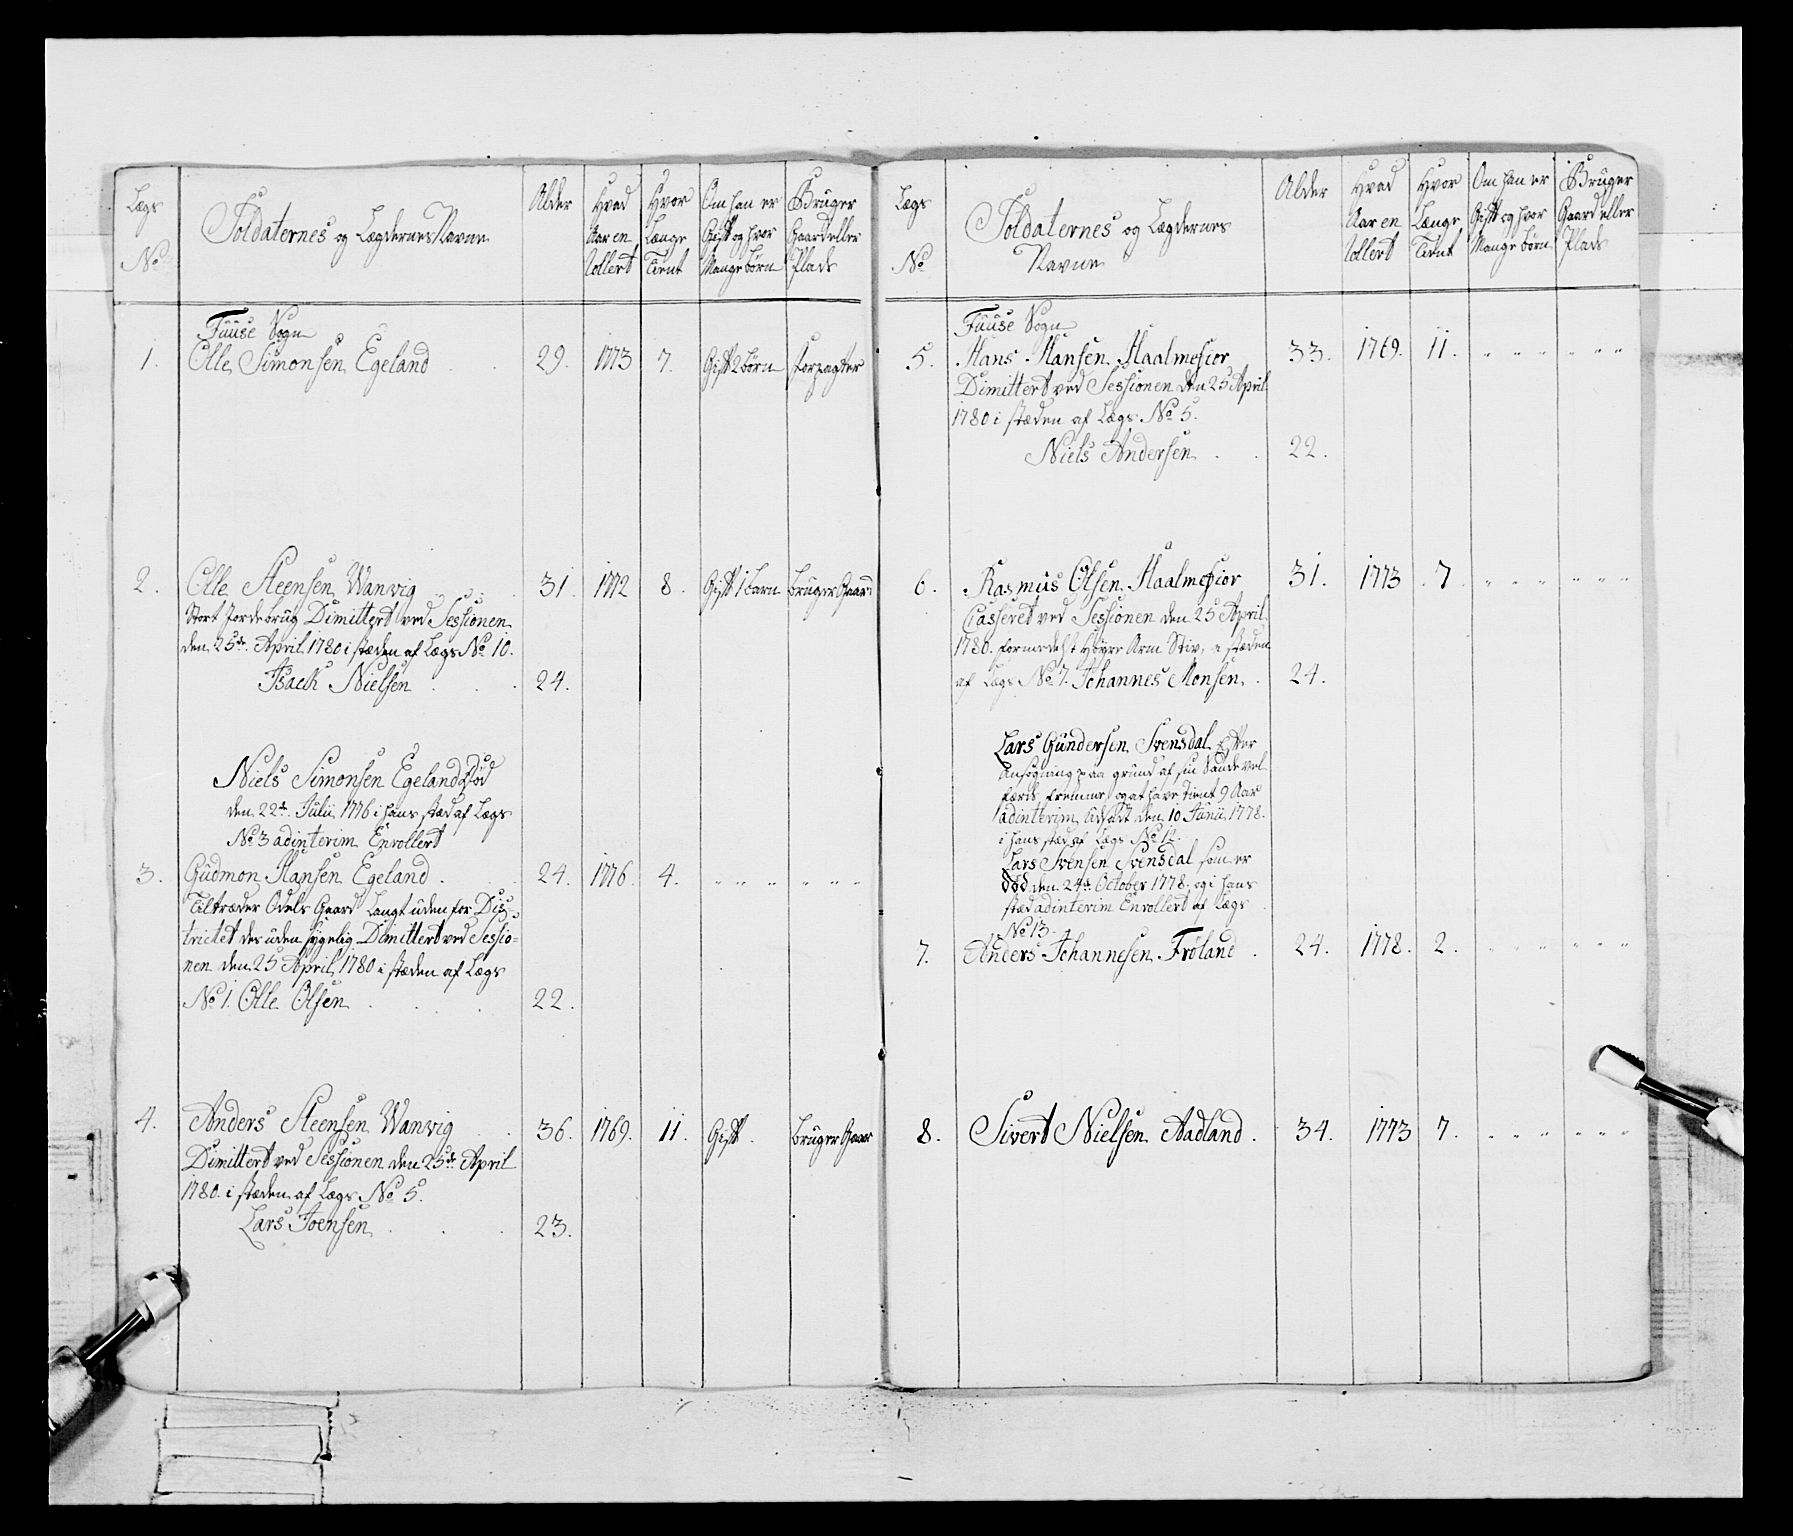 Lægs
No
Soldaternes og Lægdernes Navne
Alder
Hvad
Aar en
rollert
Hvor
Længe
Tient
Om han er
Gift og hvor
Mange børn
Bruger
Gaard eller
Plads
Fuuse Sogn
1. Olle Simonsen Egeland . . 29. 1773 7. Gift 2 børn forpagter
2. Olle Steensen Wanvig . . 31. 1772 8. Gift 1 barn bruger Gaard
Stort Jordebrug Dimittert ved Sessionen
den 25de April 1780 i stæden af Lægs No 10.
Isach Nielsen . . . 24.
Niels Simonsen Egeland død
den 22de Julii 1776 i hans stæd af Lægs
No 3 adinterim Enrollert
3. Gudmon Hansen Egeland . 24. 1776. 4. " " " " " "
Tiltræder Odels Gaard Langt uden for Dis-
trictet des uden sygelig Dimittert ved Sessio-
nen den 25 April 1780 i stæden af Lægs
No 1. Olle Olsen . . . 22.
4. Anders Steensen Wanvig . 36. 1769. 11. Gift . bruger Gaar
Dimittert ved Sessionen den 25de April
1780. i stæden af Lægs No 5.
Lars Joensen . . . 23.
Lægs
No
Soldaternes og Lægdernes
Navne
Alder
Hvad
Aar en
rollert
Hvor
Længe
Tient
Om han er
Gift og hvor
Mange børn
Bruger
Gaard eller
Plads
Fuuse Sogn
5. Hans Hansen Haalmefior 33. 1769. 11. " " " " " "
Dimittert ved Sessionen den 25 April
1780 i stæden af Lægs No 5.
Niels Andersen . . 22.
6. Rasmus Olsen Haalmefior 31. 1773 . 7. " " " " " "
Casseret ved Sessionen den 25 April
1780. formedelst Høyre Arm Stiv, i stæden
af Lægs No 7. Johannes Monsen . 24.
Lars Gundersen Svensdal Efter
Ansøgning paa grund af sin Sande vel
færds fremme og at have tient 9 Aar
adinterim udsat den 10 Junii 1778.
i hans stæd af Lægs No 12.
Lars Svensen Svensdal som er
død den 24de October 1778. og i hans
stæd adinterim Enrollert af Lægs
No 13.
7. Anders Johannesen Frøland . 24. 1778. 2. " " " " " "
8. Sivert Nielsen Aadland . 34. 1773 7. " " " " " "